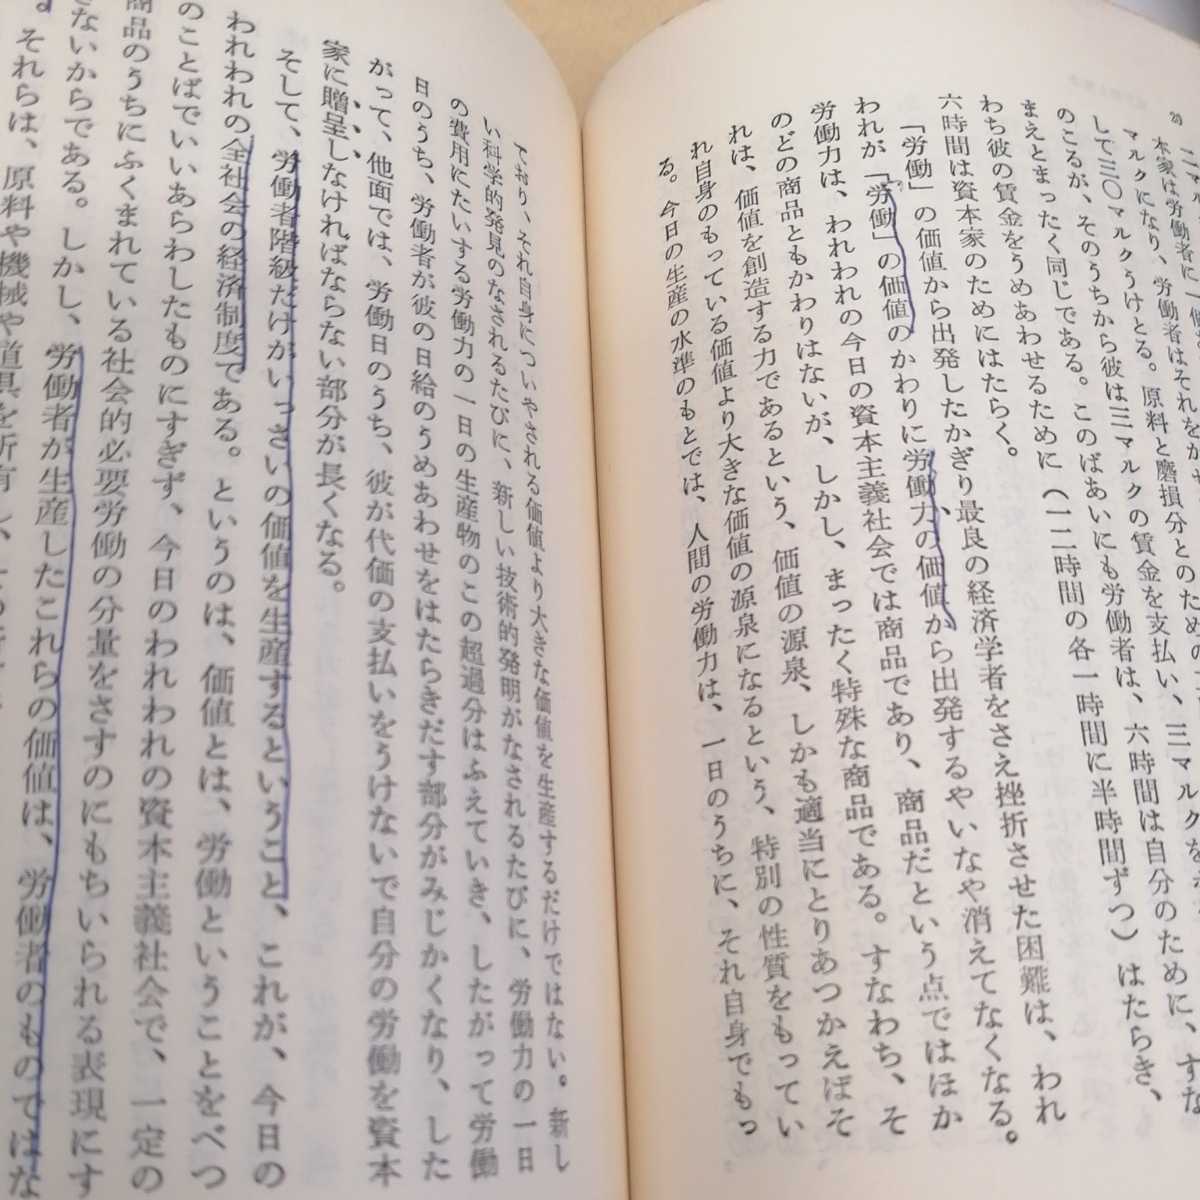 20
本家は労働者に一
マルクになり、労働者はそれをかせ
して三〇マルクうけとる。原料と磨損分とのための
のこるが、そのうちから彼は三マルクの賃金を支払い、三マルクを
まえとまったく同じである。このばあいにも労働者は、六時間は自分のために、すな
わち彼の賃金をうめあわせるために(一二時間の各一時間に半時間ずつ)はたらき、
六時間は資本家のためにはたらく。
「労働」の価値から出発したかぎり最良の経済学者をさえ挫折させた困難は、われ
われが「労働」の価値のかわりに労働力の価値から出発するやいなや消えてなくなる。
労働力は、われわれの今日の資本主義社会では商品であり、商品だという点ではほか
のどの商品ともかわりはないが、しかし、まったく特殊な商品である。すなわち、そ
れは、価値を創造する力であるという、価値の源泉、しかも適当にとりあつかえばそ
れ自身のもっている価値より大きな価値の源泉になるという、特別の性質をもってい
る。今日の生産の水準のもとでは、人間の労働力は、一日のうちに、それ自身でもっ
ており、それ自身についやされる価値より大きな価値を生産するだけではない。新し
い科学的発見のなされるたびに、新しい技術的発明がなされるたびに、労働力の一日
の費用にたいする労働力の一日の生産物のこの超過分はふえていき、したがって労働
日のうち、労働者が彼の日給のうめあわせをはたらきだす部分がみじかくなり、した
がって、他面では、労働日のうち、彼が代価の支払いをうけないで自分の労働を資本
家に贈呈しなければならない部分が長くなる。
そして、労働者階級だけがいっさいの価値を生産するということ、これが、今日の
われわれの全社会の経済制度である。というのは、価値とは、労働ということをべつ
のことばでいいあらわしたものにすぎず、今日のわれわれの資本主義社会で、一定の
商品のうちにふくまれている社会的必要労働の分量をさすのにもちいられる表現にす
ぎないからである。しかし、労働者が生産したこれらの価値は、労働者のものではな
それらは、原料や機械や道具を所有し、